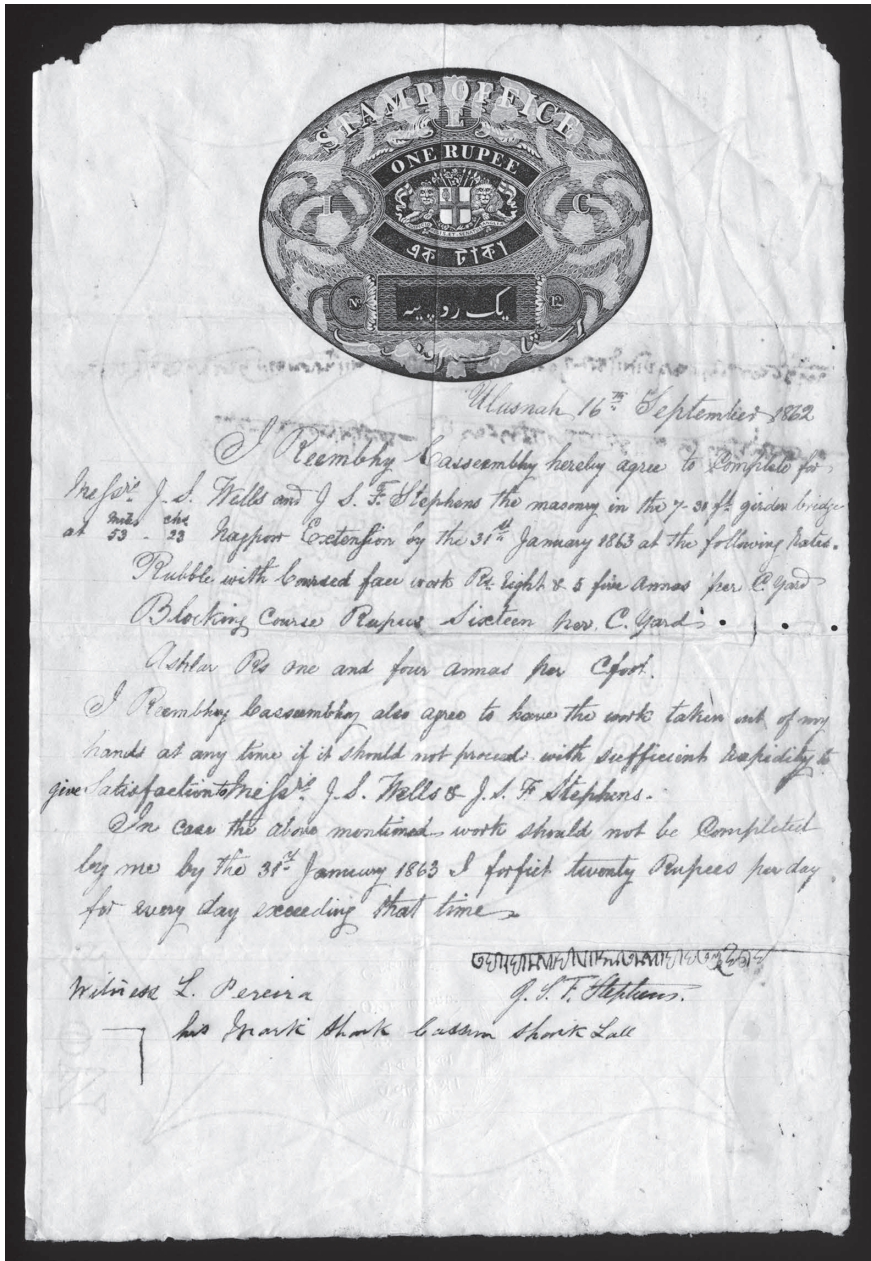 STAMP OFFICE
E
ONE RUPEE
I C
এক টাকা
No 12
یک روپیہ
16th September 1862
I Reembhy Cassembhy hereby agree to Complete for
Messrs. J. S. Wells and J. S. F. Stephens the masonry in the 7-31 ft girder bridge
at miles 53 - chs 23 Nagpoor Extension by the 31st January 1863 at the following Rates.
Rubble with Coursed face work Rs. Eight & 5 five Annas per C. Yard
Blocking Course Rupees Sixteen per. C. Yard.
Ashlar Rs one and four annas per Cfoot.
I Reembhoy Cassembhoy also agree to have the work taken out of my
hands at any time if it should not proceed with sufficient Rapidity to
give Satisfaction to Messrs. J. S. Wells & J. S. F Stephens.
In case the above mentioned work should not be Completed
by me by the 31st January 1863 I forfiet twenty Rupees per day
for every day exceeding that time.
J. S. F. Stephens.
Witness L. Pereira
his Mark Shaik Cassim Shaik Lall